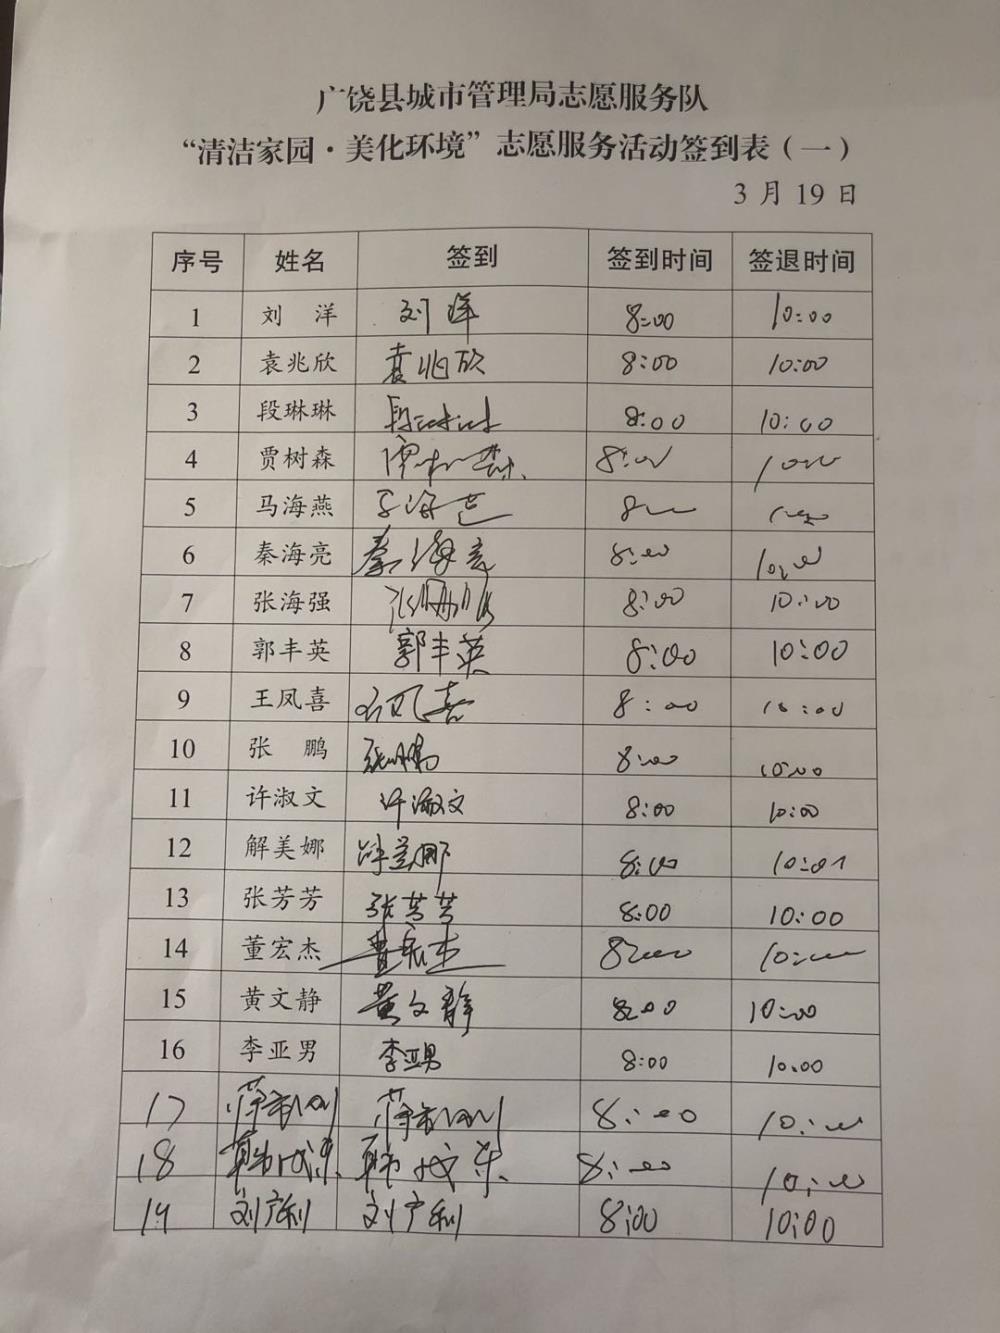 广饶县城市管理局志愿服务队
“清洁家园·美化环境”志愿服务活动签到表（一）
3 月 19 日
序号 姓名 签到 签到时间 签退时间
1 刘 洋 刘洋 8:00 10:00
2 袁兆欣 袁兆欣 8:00 10:00
3 段琳琳 段琳琳 8:00 10:00
4 贾树森 贾树森 8:00 10:00
5 马海燕 马海燕 8:00 10:00
6 秦海亮 秦海亮 8:00 10:00
7 张海强 张海强 8:00 10:00
8 郭丰英 郭丰英 8:00 10:00
9 王凤喜 王凤喜 8:00 10:00
10 张 鹏 张鹏 8:00 10:00
11 许淑文 许淑文 8:00 10:00
12 解美娜 解美娜 8:00 10:01
13 张芳芳 张芳芳 8:00 10:00
14 董宏杰 董宏杰 8:00 10:00
15 黄文静 黄文静 8:00 10:00
16 李亚男 李亚男 8:00 10:00
17 8:00 10:00
18 8:00 10:00
19 刘广利 刘广利 8:00 10:00